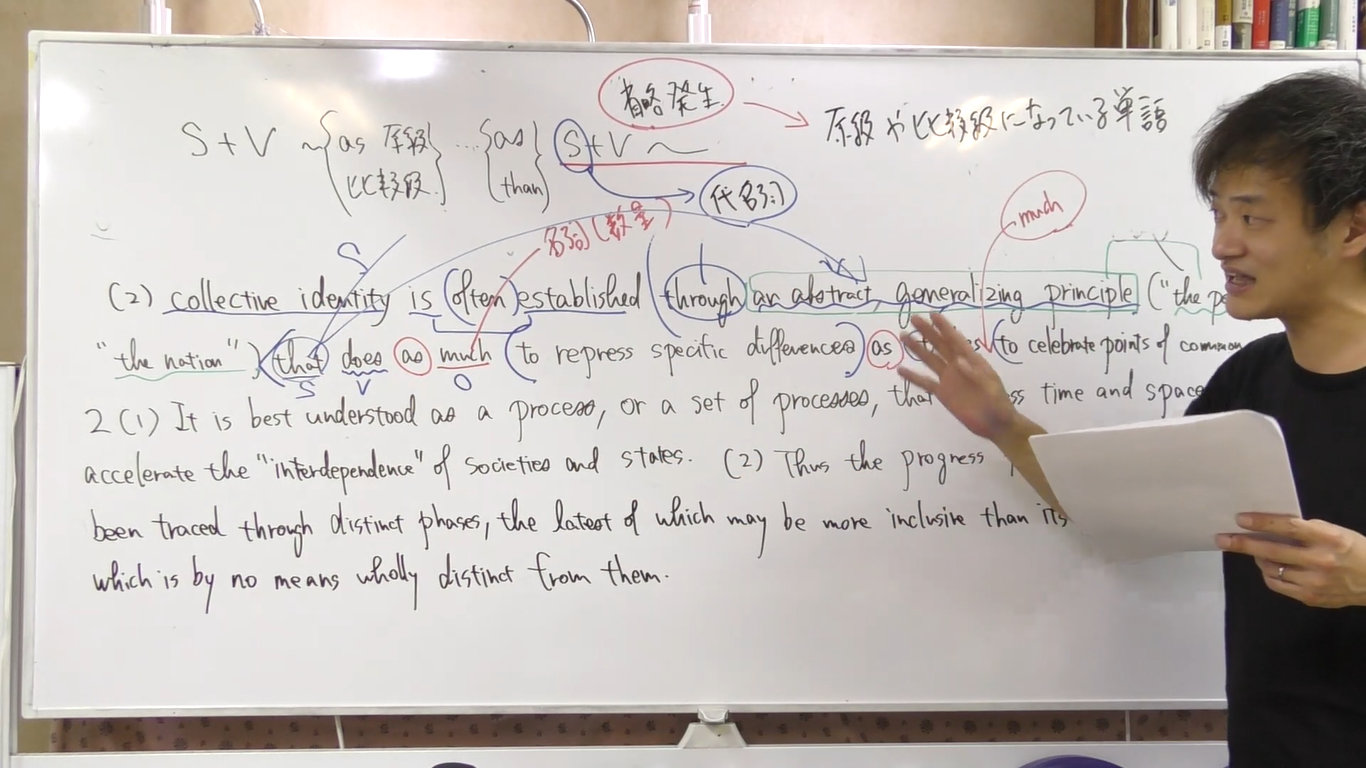 省略発生 → 原級や比較級になっている単語
S+V ~ {as 原級 比較級} … {as than} S+V ~
代名詞
名詞(数量)
much
S
(2) collective identity is (often) established (through an abstract, generalizing principle ("the
"the nation"), (that does as much (to repress specific differences) as (to celebrate points of
S V O
2(1) It is best understood as a process, or a set of processes, time and space
accelerate the "interdependence" of societies and states. (2) Thus the progress
been traced through distinct phases, the latest of which may be more inclusive than its
which is by no means wholly distinct from them.